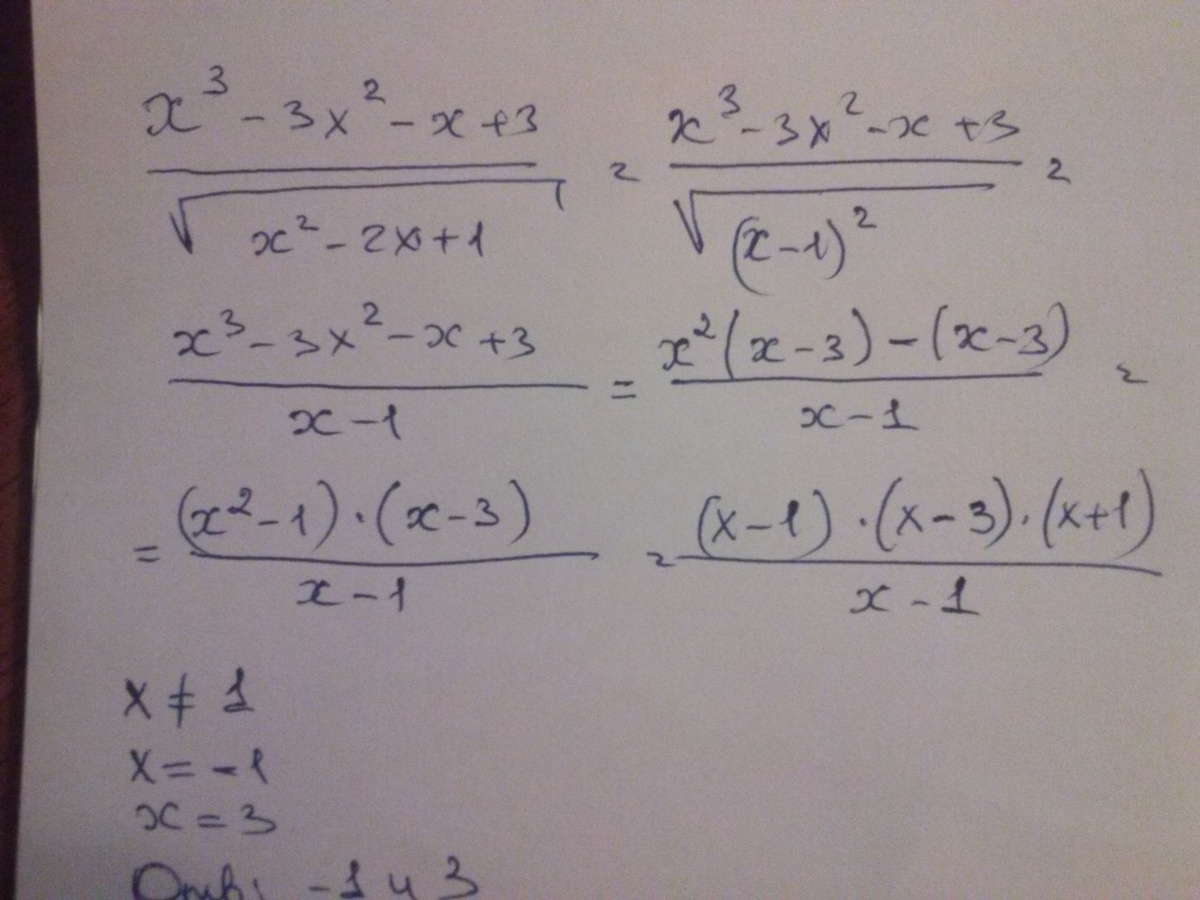 (x³ - 3x² - x + 3) / √(x² - 2x + 1) = (x³ - 3x² - x + 3) / √((x - 1)²) =
(x³ - 3x² - x + 3) / (x - 1) = (x²(x - 3) - (x - 3)) / (x - 1) =
= ((x² - 1) · (x - 3)) / (x - 1) = ((x - 1) · (x - 3) · (x + 1)) / (x - 1)
x ≠ 1
x = -1
x = 3
-1 и 3